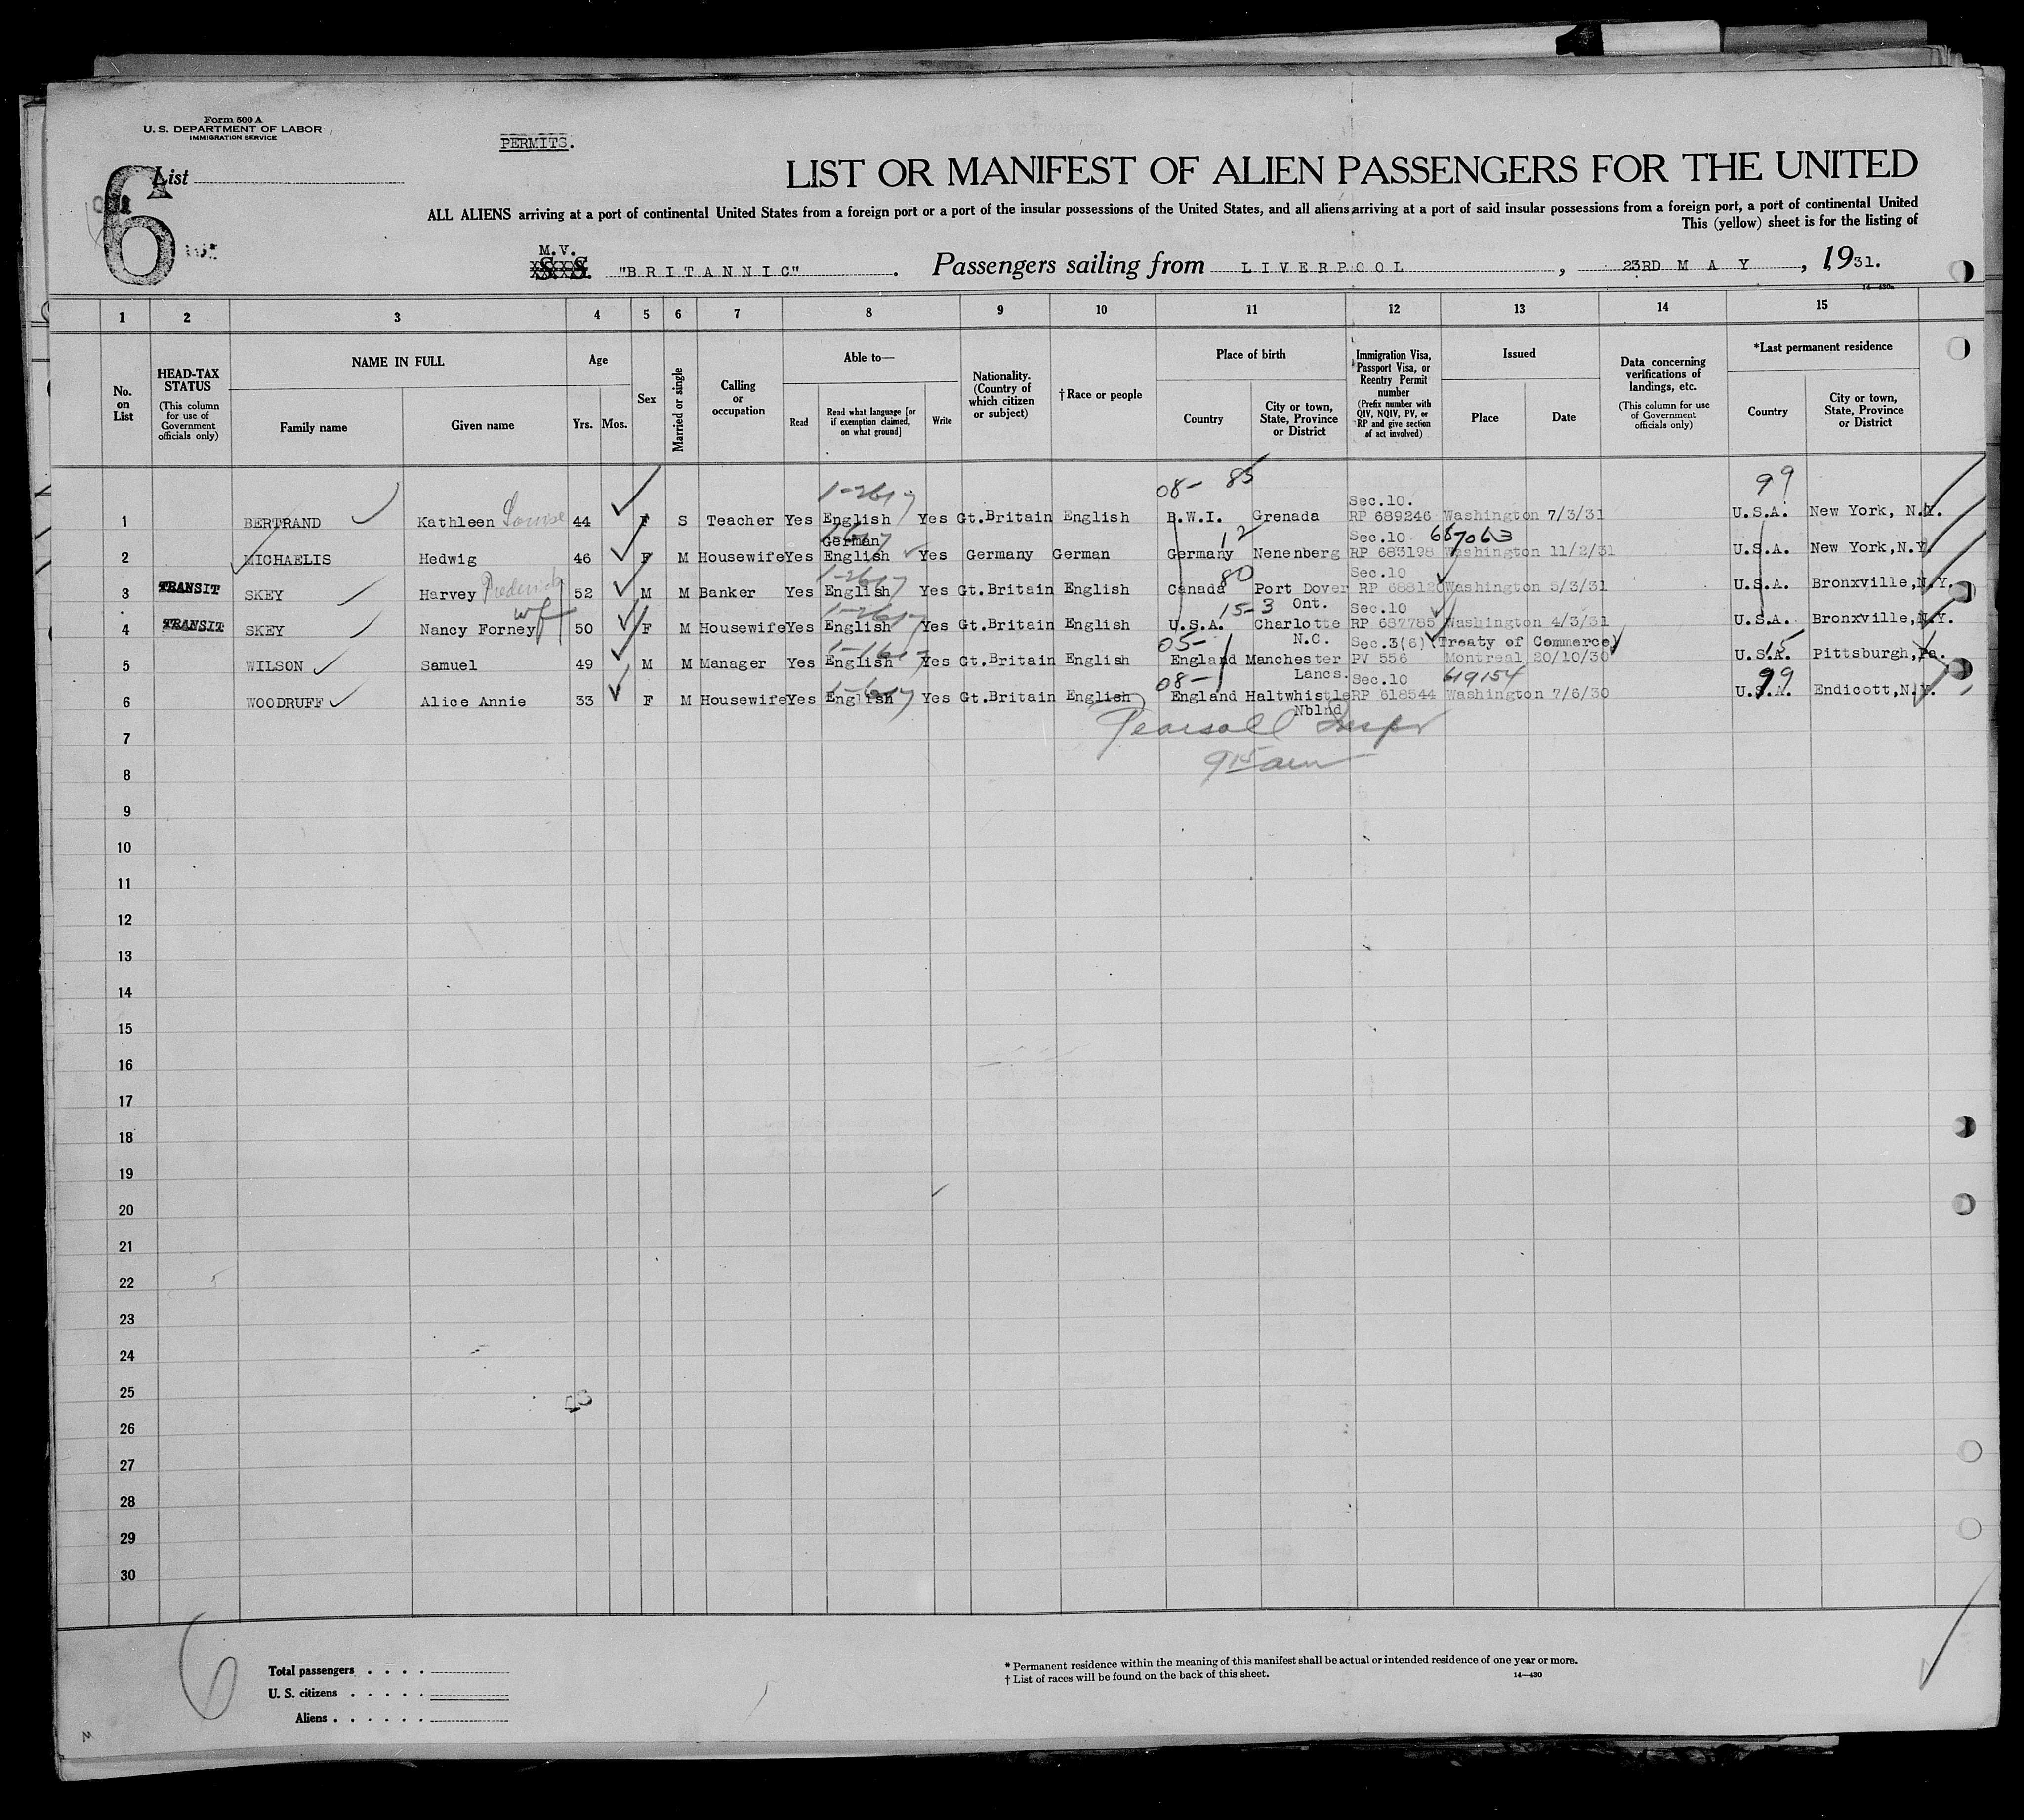 Form 500 A
U. S. DEPARTMENT OF LABOR
IMMIGRATION SERVICE
PERMITS.
List
6
A
LIST OR MANIFEST OF ALIEN PASSENGERS FOR THE UNITED
ALL ALIENS arriving at a port of continental United States from a foreign port or a port of the insular possessions of the United States, and all aliens arriving at a port of said insular possessions from a foreign port, a port of continental United
This (yellow) sheet is for the listing of
M.V.
S. S. "BRITANNIC" . Passengers sailing from LIVERPOOL , 23RD MAY , 1931.
14—430a
1 2 3 4 5 6 7 8 9 10 11 12 13 14 15
No. on List
HEAD-TAX STATUS (This column for use of Government officials only)
NAME IN FULL
Family name
Given name
Age
Yrs.
Mos.
Sex
Married or single
Calling or occupation
Able to—
Read
Read what language [or if exemption claimed, on what ground]
Write
Nationality. (Country of which citizen or subject)
† Race or people
Place of birth
Country
City or town, State, Province or District
Immigration Visa, Passport Visa, or Reentry Permit number (Prefix number with QIV, NQIV, PV, or RP and give section of act involved)
Issued
Place
Date
Data concerning verifications of landings, etc. (This column for use of Government officials only)
*Last permanent residence
Country
City or town, State, Province or District
08- 85 99
Sec.10.
1 BERTRAND Kathleen Louise 44 F S Teacher Yes English Yes Gt.Britain English B.W.I. Grenada RP 689246 Washington 7/3/31 U.S.A. New York, N.Y.
German 12 Sec.10 687063
2 MICHAELIS Hedwig 46 F M Housewife Yes English Yes Germany German Germany Nenenberg RP 683198 Washington 11/2/31 U.S.A. New York,N.Y.
80 Sec.10
3 TRANSIT SKEY Harvey Frederick 52 M M Banker Yes English Yes Gt.Britain English Canada Port Dover RP 688120 Washington 5/3/31 U.S.A. Bronxville,N.Y.
wf 15-3 Ont. Sec.10
4 TRANSIT SKEY Nancy Forney 50 F M Housewife Yes English Yes Gt.Britain English U.S.A. Charlotte RP 687785 Washington 4/3/31 U.S.A. Bronxville,N.Y.
05- N.C. Sec.3(6) (Treaty of Commerce) 15
5 WILSON Samuel 49 M M Manager Yes English Yes Gt.Britain English England Manchester PV 556 Montreal 20/10/30 U.S.A. Pittsburgh,Pa.
08- Lancs. Sec.10 619154 99
6 WOODRUFF Alice Annie 33 F M Housewife Yes English Yes Gt.Britain English England Haltwhistle RP 618544 Washington 7/6/30 U.S.A. Endicott,N.Y.
Nblnd
Pearsall Inspr
7
9 15 am
8
9
10
11
12
13
14
15
16
17
18
19
20
21
22
23
24
25
26
27
28
29
30
6
Total passengers
U. S. citizens
Aliens
* Permanent residence within the meaning of this manifest shall be actual or intended residence of one year or more.
† List of races will be found on the back of this sheet.
14—430